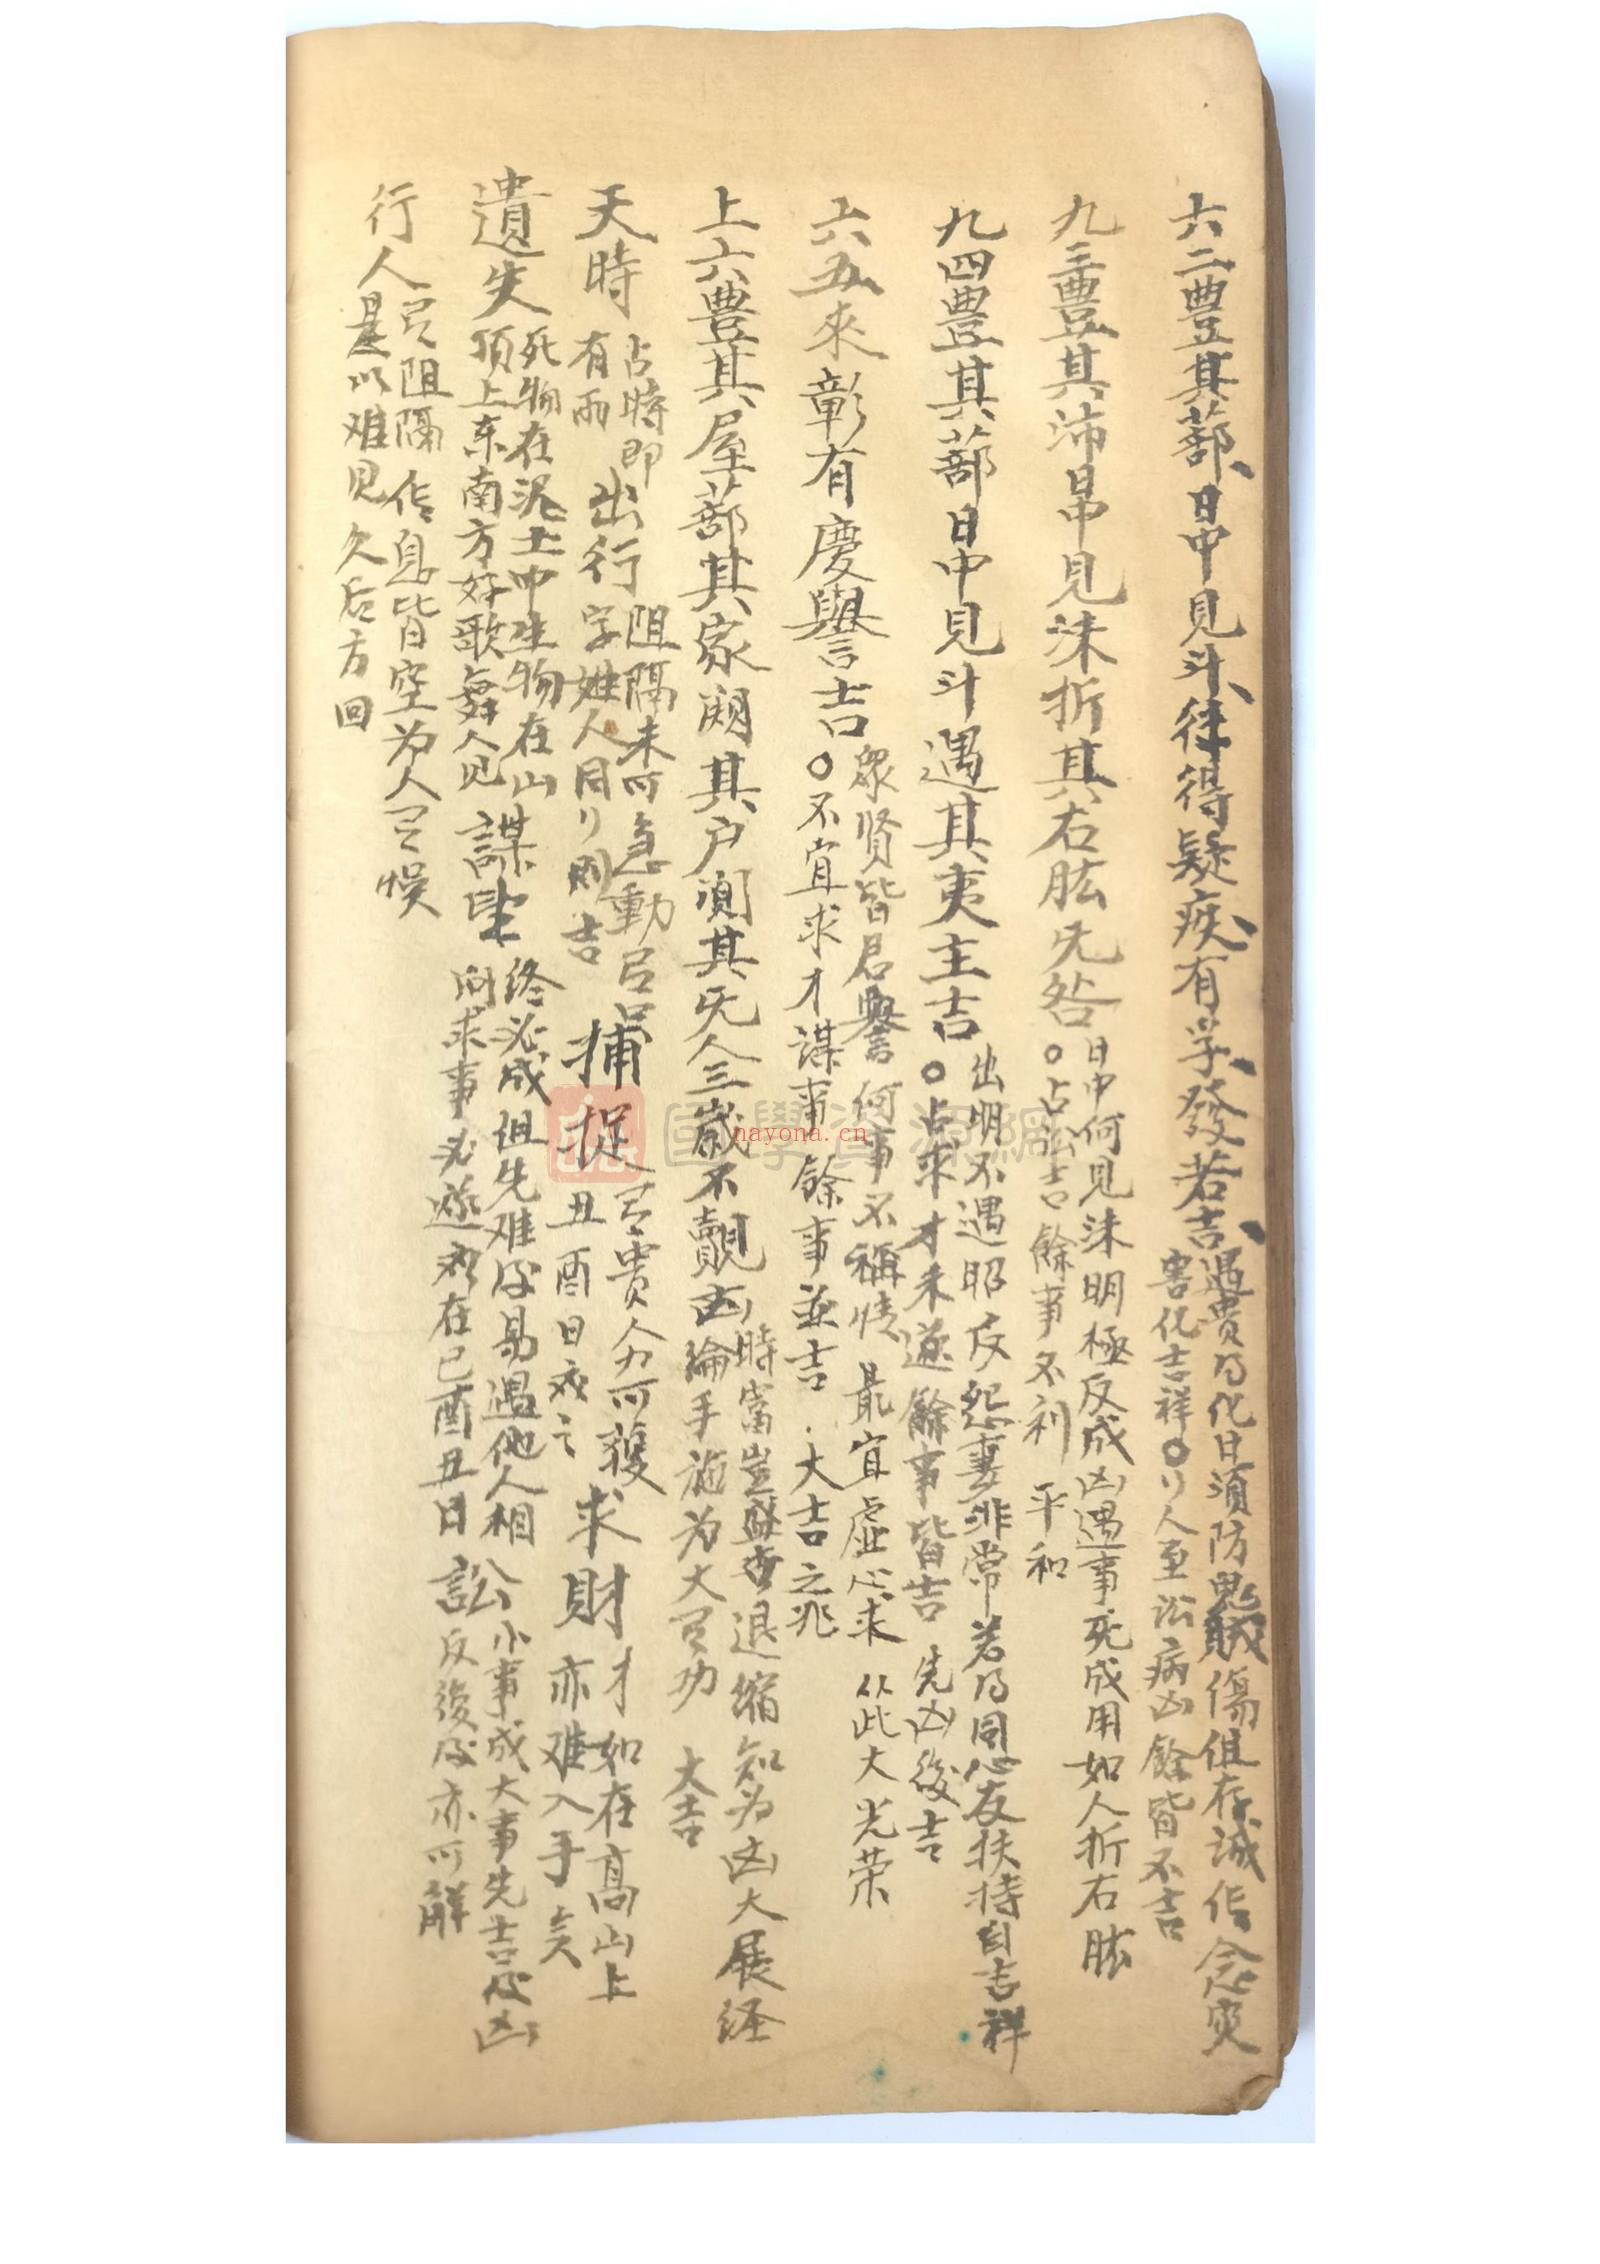 六二豊其蔀日中見斗徃得疑疾有孚發若吉
遇貴乃化日須防鬼賊傷但存誠作念灾
害化吉祥〇リ人至訟病凶餘皆不吉
九三豊其沛日中見沬折其右肱无咎
日中何見沬明極反成凶遇事死成用如人折右肱
〇占訟吉餘事不利 平和
九四豊其蔀日中見斗遇其夷主吉
出明不遇昭反怨妻非常若乃同心友扶持自吉祥
〇占求才未遂餘事皆吉 先凶後吉
六五來彰有慶譽吉
衆贤皆君譽何事不稱情 最宜虚心来 从此大光荣
〇不宜求才謀事餘事並吉 大吉之兆
上六豊其屋蔀其家闚其户闃其旡人三歲不覿凶
時富豈盛 退缩知为凶大展经
綸手施为大 功 大吉
天時 占時即
有雨
出行 阻隔未可急動
字姓人同リ則吉
捕捉 貴人力可獲
丑酉日成之
求財 才如在高山上
亦难入手矣
遺失 死物在泥土中生物在山
頂上东南方好歌舞人见
謀
终必成但先难后易遇他人相
向求事必遂 在巳酉丑日
訟 小事成大事先吉后凶
反後后亦可解
行人 阻隔作息皆空为人 悞
是以难见久后方回
國學資源網
nayona.cn